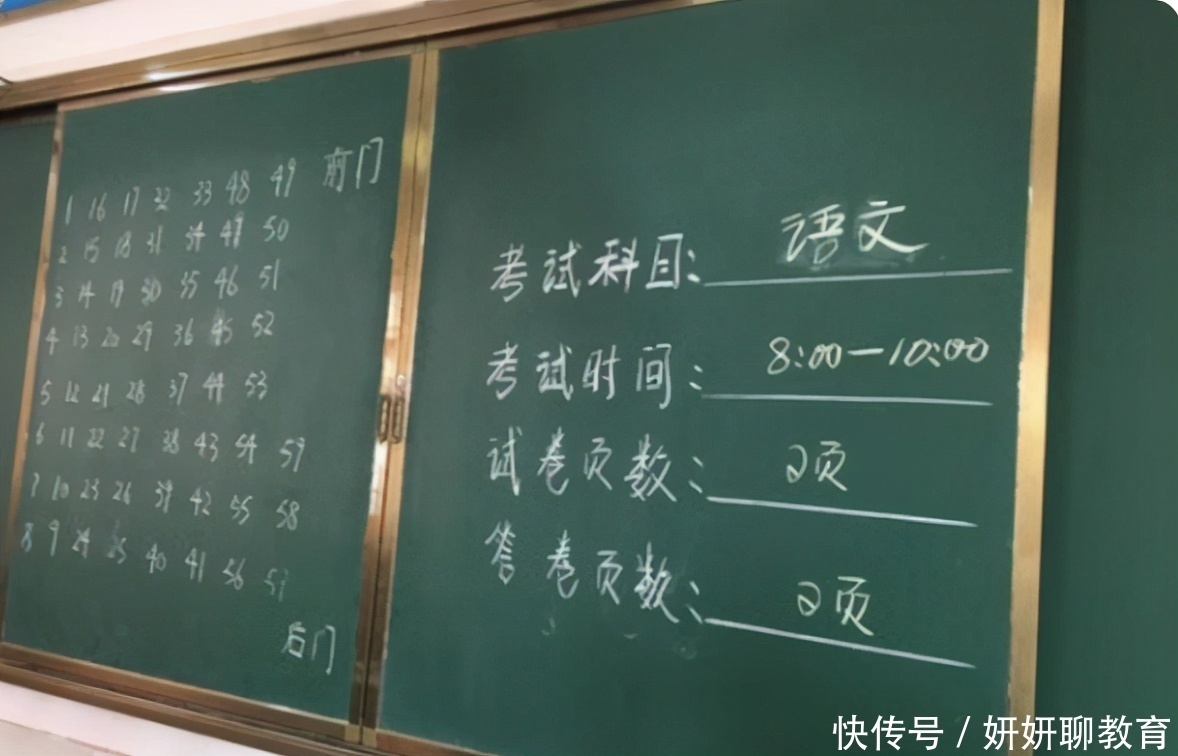 1 16 17 32 33 48 49 前门
2 15 18 31 34 47 50
3 14 19 30 35 46 51
4 13 20 29 36 45 52
5 12 21 28 37 44 53
6 11 22 27 38 43 54 59
7 10 23 26 39 42 55 58
8 9 24 25 40 41 56 57
后门
考试科目: 语文
考试时间: 8:00—10:00
试卷页数: 2页
答卷页数: 2页
快传号 / 妍妍聊教育